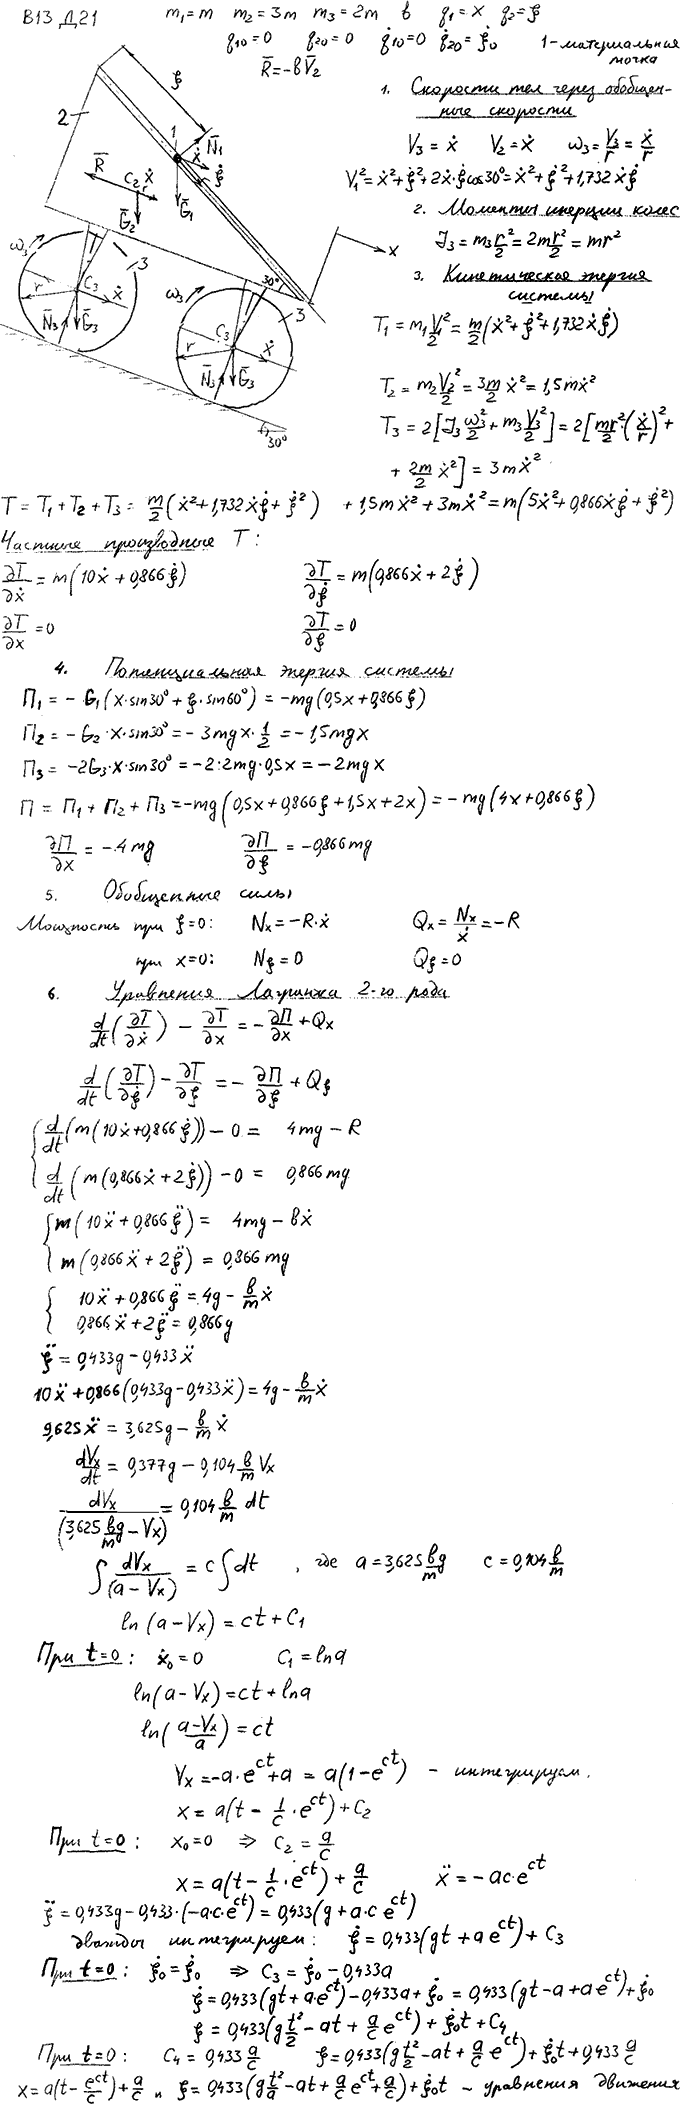 В13 Д21 m₁=m m₂=3m m₃=2m в q₁=x q₂=ξ
q₁₀=0 q₂₀=0 q̇₁₀=0 q̇₂₀=ξ̇₀ 1-материальная точка
R̄=-вV̄₂
1. Скорости тел через обобщен-
ные скорости
V₃=ẋ V₂=ẋ ω₃=V₃/r=ẋ/r
V₁²=ẋ²+ξ̇²+2ẋ·ξ̇cos30°=ẋ²+ξ̇²+1,732ẋξ̇
2. Моменты инерции колес
J₃=m₃r²/2=2mr²/2=mr²
3. Кинетическая энергия
системы
T₁=m₁V₁²/2=m/2(ẋ²+ξ̇²+1,732ẋξ̇)
T₂=m₂V₂²/2=3m/2 ẋ²=1,5mẋ²
T₃=2[J₃ω₃²/2+m₃V₃²/2]=2[mr²/2(ẋ/r)²+
+2m/2 ẋ²]=3mẋ²
2
ξ
1
N̄₁
ẋ
ξ̇
R̄
C₂ ẋ
r
Ḡ₂
Ḡ₁
x
ω₃
3
C₃
r
ẋ
N̄₃
Ḡ₃
ω₃
30°
3
C₃
r
ẋ
N̄₃
Ḡ₃
30°
T=T₁+T₂+T₃=m/2(ẋ²+1,732ẋξ̇+ξ̇²)+1,5mẋ²+3mẋ²=m(5ẋ²+0,866ẋξ̇+ξ̇²)
Частные производные T:
∂T/∂ẋ=m(10ẋ+0,866ξ̇) ∂T/∂ξ̇=m(0,866ẋ+2ξ̇)
∂T/∂x=0 ∂T/∂ξ=0
4. Потенциальная энергия системы
П₁=-G₁(x·sin30°+ξ·sin60°)=-mg(0,5x+0,866ξ)
П₂=-G₂·x·sin30°=-3mgx·1/2=-1,5mgx
П₃=-2G₃·x·sin30°=-2·2mg·0,5x=-2mgx
П=П₁+П₂+П₃=-mg(0,5x+0,866ξ+1,5x+2x)=-mg(4x+0,866ξ)
∂П/∂x=-4mg ∂П/∂ξ=-0,866mg
5. Обобщенные силы
Мощность при ξ=0: Nx=-R·ẋ Qx=Nx/ẋ=-R
при x=0: Nξ=0 Qξ=0
6. Уравнения Лагранжа 2-го рода
d/dt(∂T/∂ẋ)-∂T/∂x=-∂П/∂x+Qx
d/dt(∂T/∂ξ̇)-∂T/∂ξ=-∂П/∂ξ+Qξ
d/dt(m(10ẋ+0,866ξ̇))-0=4mg-R
d/dt(m(0,866ẋ+2ξ̇))-0=0,866mg
m(10ẍ+0,866ξ̈)=4mg-вẋ
m(0,866ẍ+2ξ̈)=0,866mg
10ẍ+0,866ξ̈=4g-в/m ẋ
0,866ẍ+2ξ̈=0,866g
ξ̈=0,433g-0,433ẍ
10ẍ+0,866(0,433g-0,433ẍ)=4g-в/m ẋ
9,625ẍ=3,625g-в/m ẋ
dVx/dt=0,377g-0,104 в/m Vx
dVx/(3,625 вg/m-Vx)=0,104 в/m dt
∫dVx/(a-Vx)=c∫dt, где a=3,625 вg/m c=0,104 в/m
ln(a-Vx)=ct+C₁
При t=0: ẋ₀=0 C₁=lna
ln(a-Vx)=ct+lna
ln((a-Vx)/a)=ct
Vx=-a·e^ct+a=a(1-e^ct) - интегрируем.
x=a(t-1/c·e^ct)+C₂
При t=0: x₀=0 ⇒ C₂=a/c
x=a(t-1/c·e^ct)+a/c ẍ=-ac·e^ct
ξ̈=0,433g-0,433·(-a·c·e^ct)=0,433(g+a·c e^ct)
дважды интегрируем: ξ̇=0,433(gt+ae^ct)+C₃
При t=0: ξ̇₀=ξ̇₀ ⇒ C₃=ξ̇₀-0,433a
ξ̇=0,433(gt+a·e^ct)-0,433a+ξ̇₀=0,433(gt-a+ae^ct)+ξ̇₀
ξ=0,433(gt²/2-at+a/c e^ct)+ξ̇₀t+C₄
При t=0: C₄=0,433 a/c ξ=0,433(gt²/2-at+a/c·e^ct)+ξ̇₀t+0,433 a/c
x=a(t-e^ct/c)+a/c и ξ=0,433(gt²/a-at+a/c e^ct+a/c)+ξ̇₀t - уравнения движения